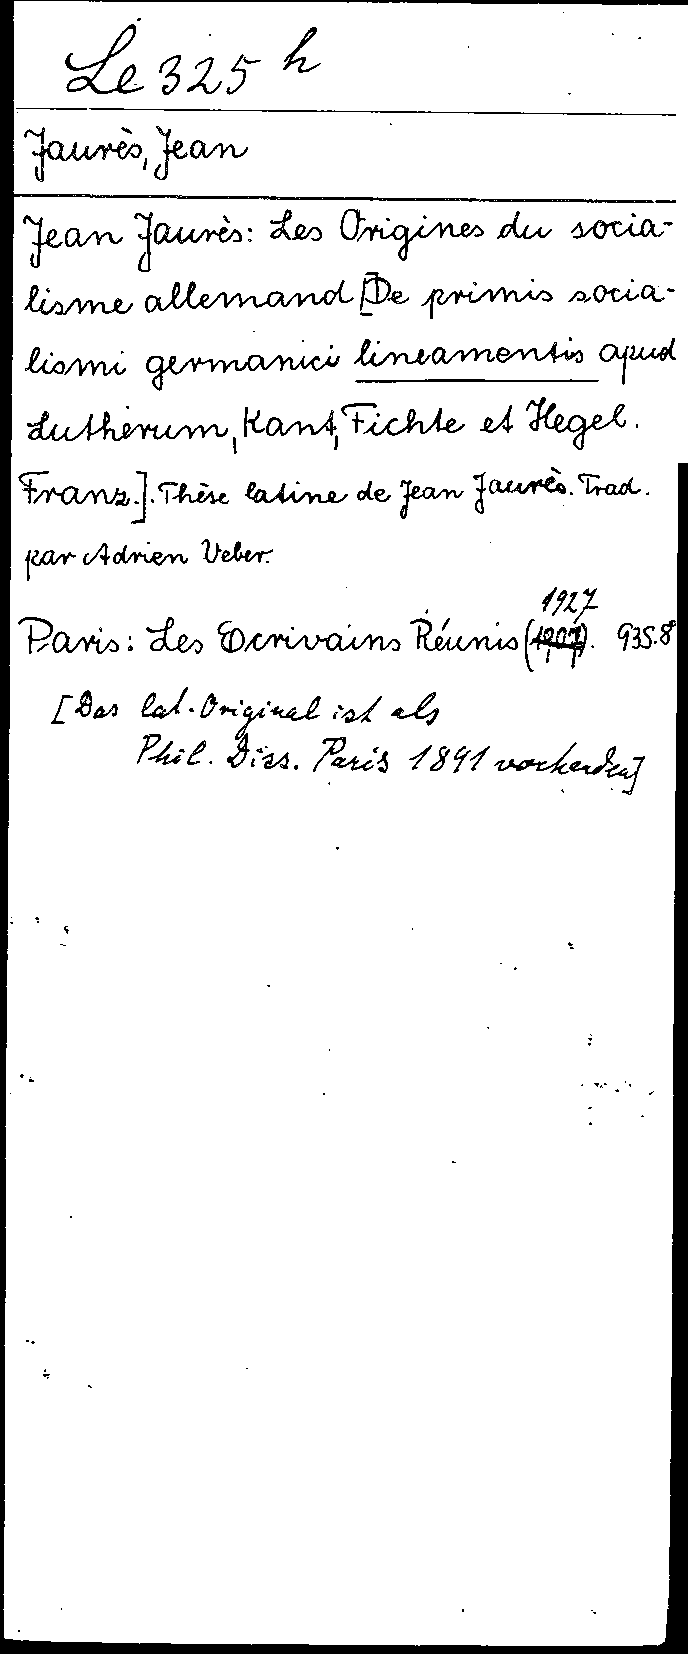 Le 325 h
Jaurès, Jean
Jean Jaurès: Les Origines du socia-
lisme allemand [De primis socia-
lismi germanici lineamentis apud
Lutherum, Kant, Fichte et Hegel.
Franz.]. Thèse latine de Jean Jaurès. Trad.
par Adrien Veber.
1927
Paris: Les Ecrivains Réunis (1907). 93 S. 8°
[Das lat. Original ist als
Phil. Diss. Paris 1891 vorhanden]